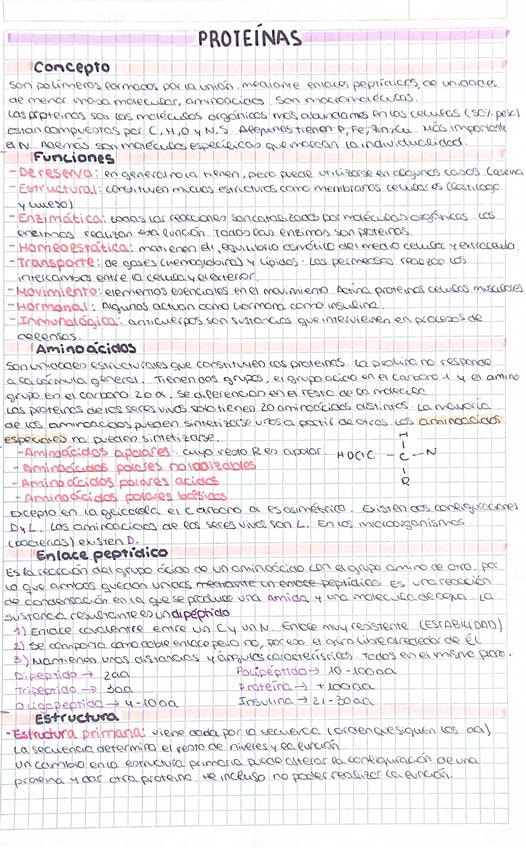 PROTEÍNAS
Concepto
Son polímeros formados por la unión, mediante enlaces peptídicos, de unidades
de menor masa molecular, aminoácidos. Son macromoléculas.
Las proteínas son las moléculas orgánicas más abundantes en las células (50% peso)
Están compuestas por C, H, O y N, S. Algunas tienen P, Fe, Zn, Cu. Más importante
el N. Además son moléculas específicas que marcan la individualidad.
Funciones
- De reserva: en general no la tienen, pero puede utilizarse en algunos casos (caseína
- Estructural: constituyen muchas estructuras como membranas celulares (cartílago
y hueso)
- Enzimática: todas las reacciones son catalizadas por moléculas orgánicas. Las
enzimas realizan esta función. Todas las enzimas son proteínas.
- Homeostática: mantienen el equilibrio osmótico del medio celular y extracelula
- Transporte: de gases (hemoglobina) y lípidos. Las permeasas realizan los
intercambios entre la célula y el exterior.
- Movimiento: elementos esenciales en el movimiento. Actina proteínas células musculares.
- Hormonal: Algunas actúan como hormona como insulina.
- Inmunológica: anticuerpos son sustancias que intervienen en procesos de
defensas.
Aminoácidos
Son unidades estructurales que constituyen las proteínas. La prolina no responde
a la fórmula general. Tienen dos grupos, el grupo ácido en el carbono 1 y el amino
grupo en el carbono 2 o α. Se diferencian en el resto de la molécula.
Las proteínas de los seres vivos solo tienen 20 aminoácidos distintos. La mayoría
de los aminoácidos pueden sintetizarse unos a partir de otros. Los aminoácidos
esenciales no pueden sintetizarse.
- Aminoácidos apolares: cuyo resto R es apolar.
- Aminoácidos polares no ionizables
- Aminoácidos polares ácidos
- Aminoácidos polares básicos
H
HOC - C - N
R
Excepto en la glicocola el carbono α es asimétrico. Existen dos configuraciones
D y L. Los aminoácidos de los seres vivos son L. En los microorganismos
(bacterias) existen D.
Enlace peptídico
Es la reacción del grupo ácido de un aminoácido con el grupo amino de otro, por
lo que ambos quedan unidos mediante un enlace peptídico. Es una reacción
de condensación en la que se produce una amida y una molécula de agua. La
sustancia resultante es un dipéptido
1) Enlace covalente entre un C y un N. Enlace muy resistente (ESTABILIDAD)
2) Se comporta como doble enlace pero no, por eso el giro libre alrededor de él.
3) Mantienen unas distancias y ángulos característicos. Todos en el mismo plano.
Dipéptido → 2aa
Polipéptido → 10-100aa
Tripéptido → 3aa
Proteína → +100aa
Oligopéptido → 4-10aa
Insulina → 21-30aa
Estructura
- Estructura primaria: viene dada por la secuencia (orden que siguen los aa)
La secuencia determina el resto de niveles y la función.
Un cambio en la estructura primaria puede alterar la configuración de una
proteína y dar otra proteína e incluso no poder realizar la función.